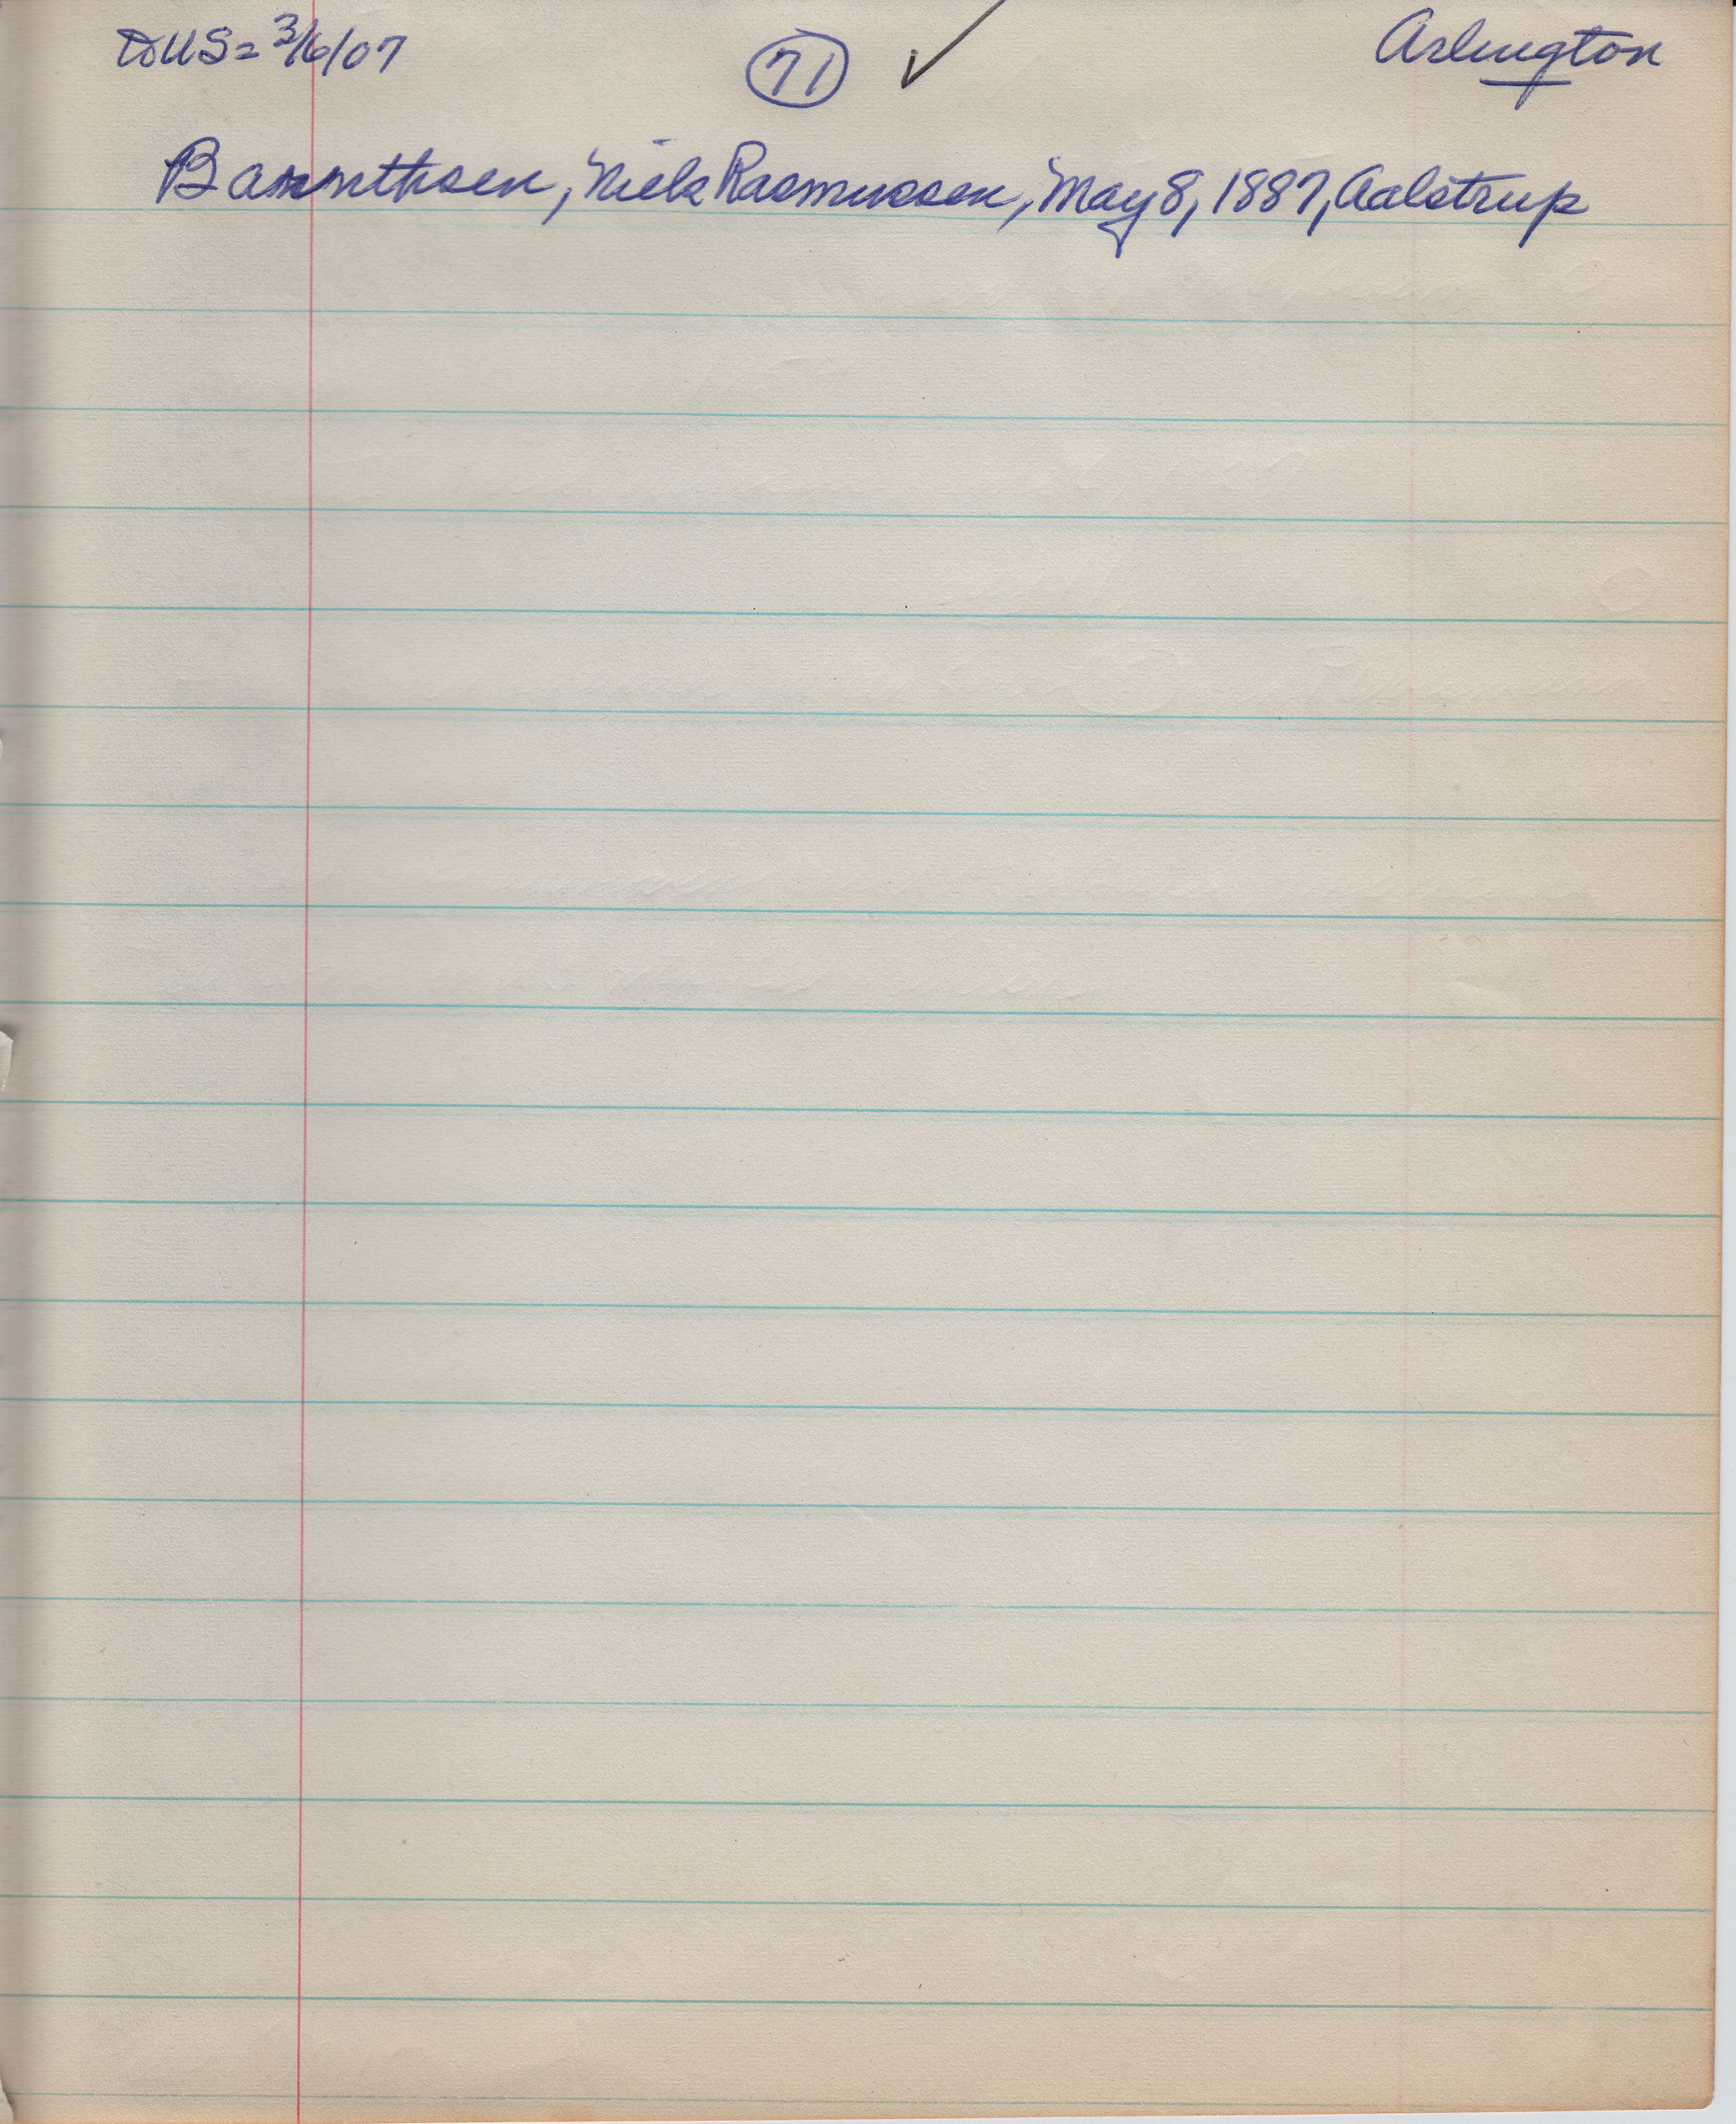 DUS = 3/6/07 71 ✓ Arlington
Niels Rasmussen, May 8, 1887, Aalstrup